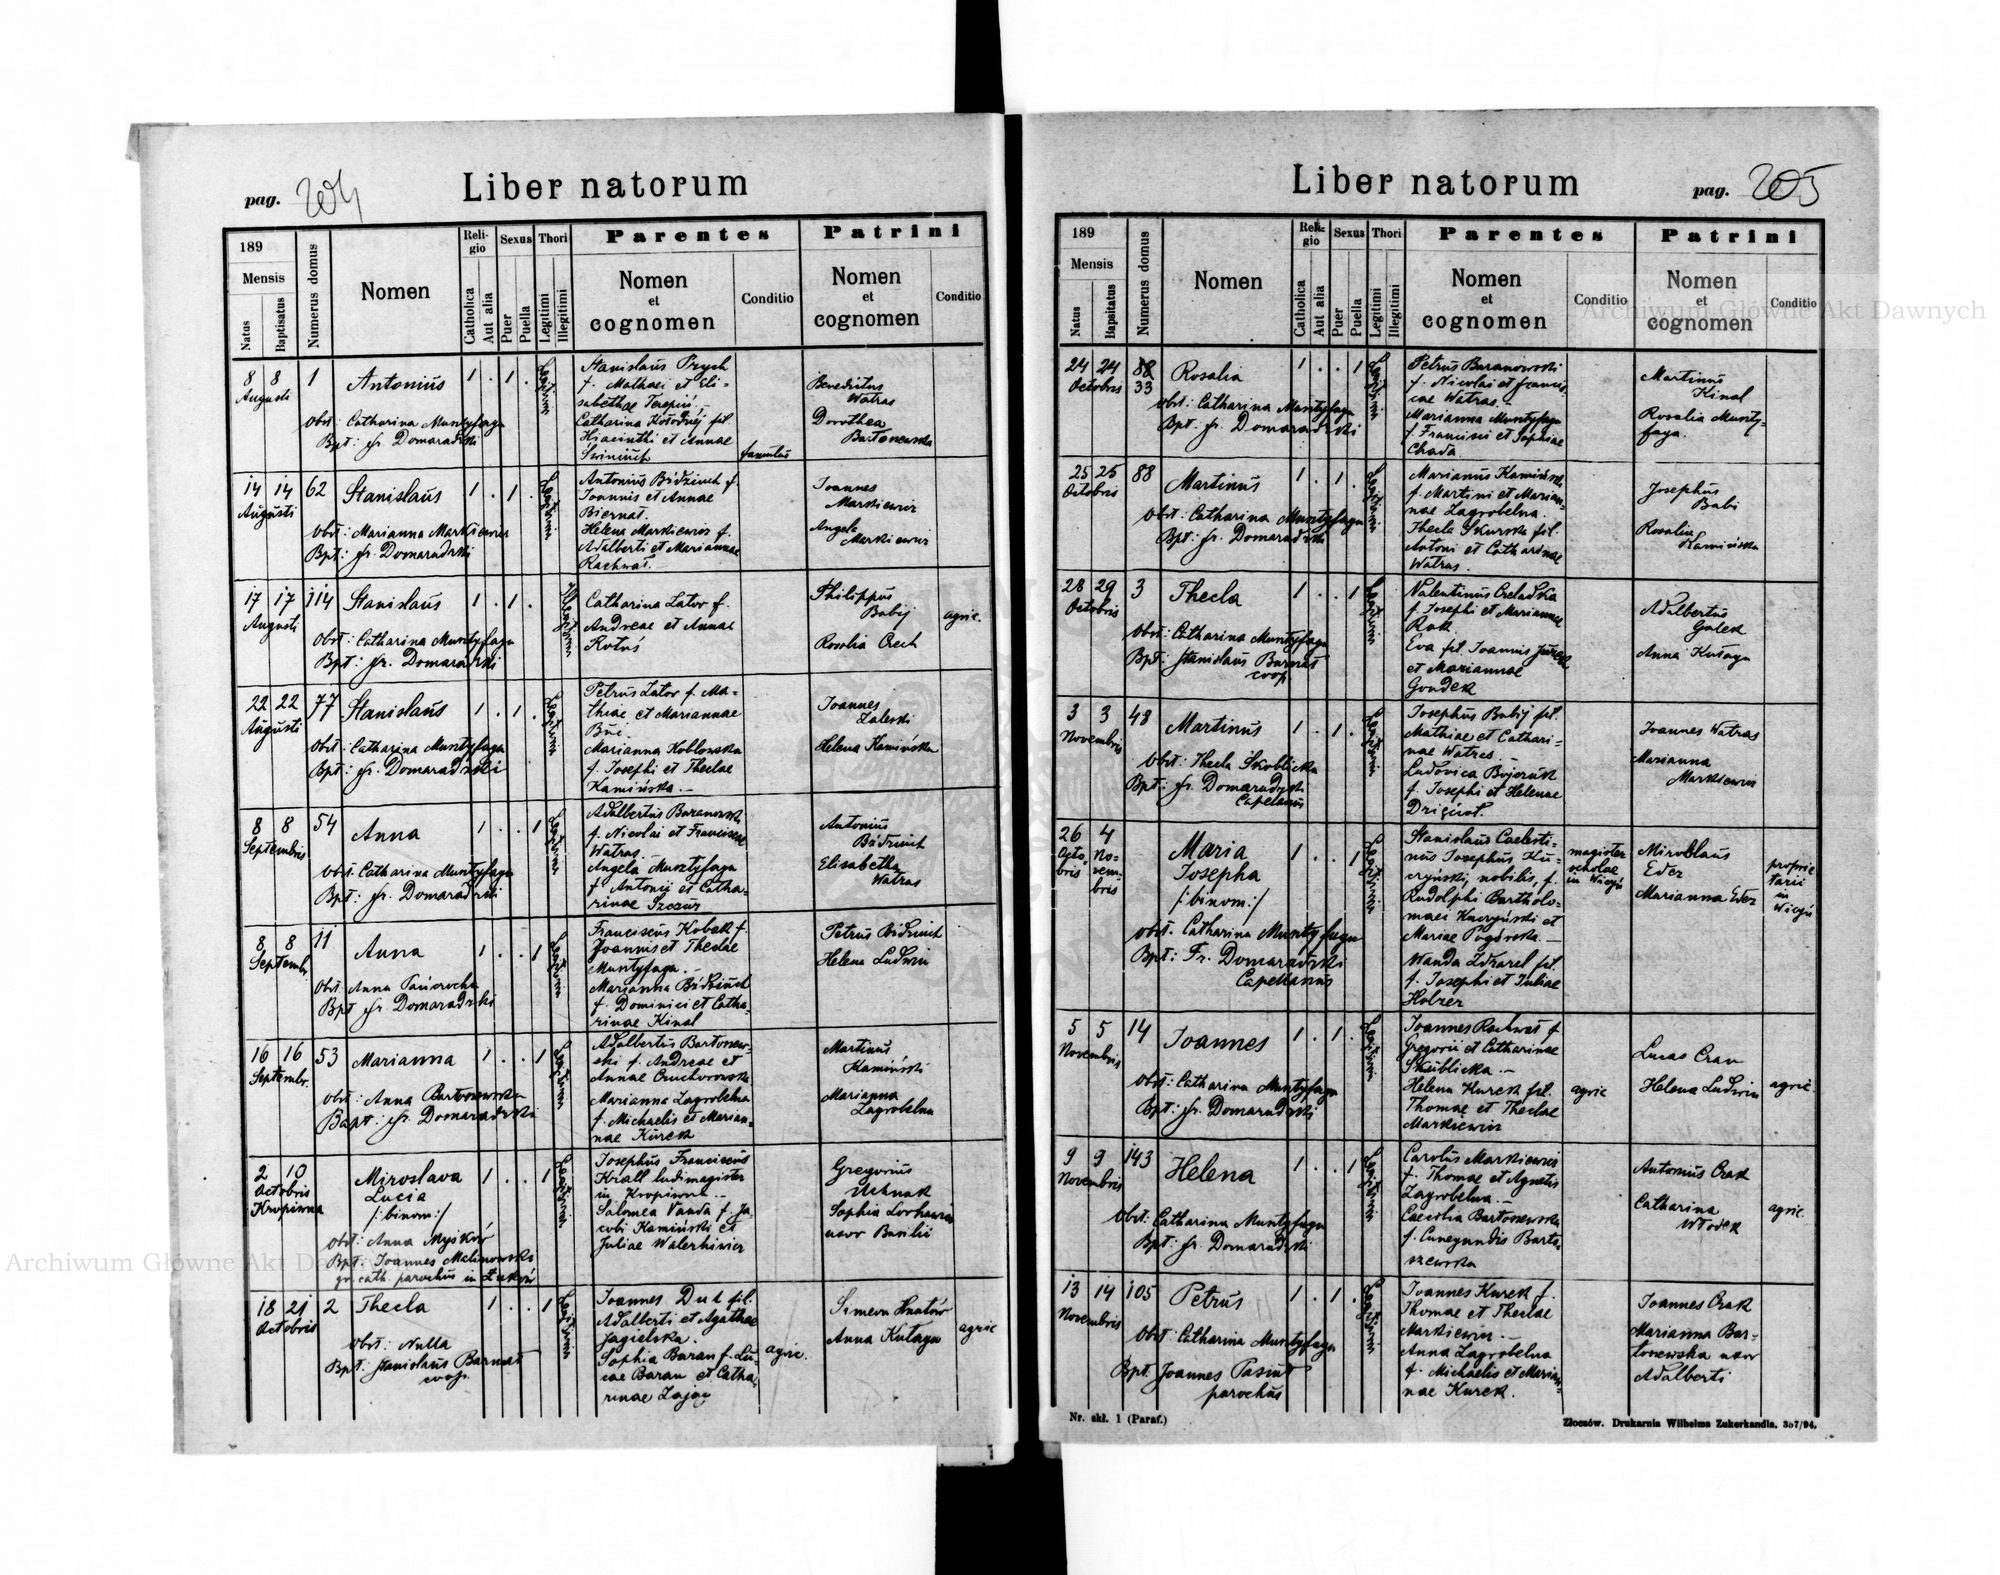 pag. 204
Liber natorum
189
Mensis
Natus
Baptisatus
Numerus domus
Nomen
Religio
Catholica
Aut alia
Sexus
Puer
Puella
Thori
Legitimi
Illegitimi
Parentes
Nomen
et
cognomen
Conditio
Patrini
Nomen
et
cognomen
Conditio
8 8 1
Augusti
Antonius
1 . 1 .
Legitimi
Obst: Catharina Muntyfaga
Bpt: fr. Domaradzki
Stanislaus Prych
f. Mathaei et Eli=
sabethae
Catharina Kołodzéj fil.
Hiacinthi et Annae
famulus
Benedictus
Watras
Dorothea
Bartoszewska
14 14 62
Augusti
Stanislaus
1 . 1 .
Legitimi
Obst: Marianna Markiewicz
Bpt: fr. Domaradzki
Antonius Bidziuch f.
Joannis et Annae
Biernat.
Helena Markiewicz f.
Adalberti et Mariannae
Rachwał.
Joannes
Markiewicz
Angela
Markiewicz
17 17 114
Augusti
Stanislaus
1 . 1 .
Illegitimi
Obst: Catharina Muntyfaga
Bpt: fr. Domaradzki
Catharina Lator f.
Andreae et Annae
Philippus
Babij
Rosalia Crech
agric.
22 22 77
Augusti
Stanislaus
1 . 1 .
Legitimi
Obst: Catharina Muntyfaga
Bpt: fr. Domaradzki
Petrus Lator f. Ma=
thiae et Mariannae
Marianna Koblowska
f. Josephi et Theclae
Kamińska. —
Joannes
Zaleski
Helena Kamińska
8 8 54
Septembris
Anna
1 . . 1
Legitimi
Obst. Catharina Muntyfaga
Bpt: fr. Domaradzki
Adalbertus Baranowski
f. Nicolai et Franciscae
Watras.
Angela Muntyfaga
f. Antonii et Catha=
rinae Szczur
Antonius
Bidziuch
Elisabetha
Watras
8 8 11
Septembr.
Anna
1 . . 1
Legitimi
Obst. Anna
Bpt fr Domaradzki
Franciscus Kobak f.
Joannis et Theclae
Muntyfaga. —
Marianna Bidziuch
f. Dominici et Catha=
rinae Kinal
Petrus Bidziuch
Helena Ludwin
16 16 53
Septembr.
Marianna
1 . . 1
Legitimi
Obst: Anna Bartoszewska
Bapt: fr. Domaradzki
Adalbertus Bartosew=
ski f. Andreae et
Annae
Marianna Zagrobelna
f. Michaelis et Marian=
nae Kurek
Martinus
Kamiński
Marianna
Zagrobelna
2 10
Octobris
Kropiwna
Miroslava
Lucia
/:binom:/
1 . . 1
Legitimi
Obst: Anna Myśków
Bpt: Joannes Malinowski
gr. cath. parochus in
Josephus Franciscus
Krall ludimagister
in Kropiwna —
Salomea Vanda f. Ja=
cobi Kamiński et
Juliae
Gregorius
Uchnak
Sophia
uxor Basilii
18 21 2
Octobris
Thecla
1 . . 1
Legitimi
Obst: Nulla
Bpt: Stanislaus Barnaś
coop.
Joannes Dul fil.
Adalberti et Agathae
Jagielska.
Sophia Baran f. Lu=
cae Baran et Catha=
rinae Zając
agric.
Simeon Hnatów
Anna Kułaga
agric
Liber natorum
pag. 205
189
Mensis
Natus
Bapsitatus
Numerus domus
Nomen
Religio
Catholica
Aut alia
Sexus
Puer
Puella
Thori
Legitimi
Illegitimi
Parentes
Nomen
et
cognomen
Conditio
Patrini
Nomen
et
cognomen
Conditio
24 24 88
Octobris 33
Rosalia
1 . . 1
Legitimi
Obst: Catharina Muntyfaga
Bpt. fr. Domaradzki
Petrus Baranowski
f. Nicolai et Francis=
cae Watras. —
Marianna Muntyfaga
f. Francisci et Sophiae
Chada.
Martinus
Kinal
Rosalia Munty=
faga.
25 25 88
Octobris
Martinus
1 . 1 .
Legitimi
Obst: Catharina Muntyfaga
Bpt: fr. Domaradzki
Marianus Kamiński
f. Martini et Marian=
nae Zagrobelna.
Thecla Skurska fil.
Antoni et Catharinae
Watras.
Josephus
Babi
Rosalia
Kamińska
28 29 3
Octobris
Thecla
1 . . 1
Legitimi
Obst: Catharina Muntyfaga
Bpt: Stanislaus Barnaś
coop
Valentinus
f. Josephi et Mariannae
Rak.
Eva fil. Joannis
et Mariannae
Gondek
Adalbertus
Golek
Anna Kułaga
3 3 48
Novembris
Martinus
1 . 1 .
Legitimi
Obst: Thecla Skoblicka
Bpt: fr. Domaradzki
Capelanus
Josephus Babij fil.
Mathiae et Cathari=
nae Watras. —
Ludovica Bojczuk
f. Josephi et Helenae
Joannes Watras
Marianna
Markiewicz
26 4
Octo. No=
bris vem=
bris
Maria
Josepha
/:binom:/
1 . . 1
Legitimi
Obst. Catharina Muntyfaga
Bpt: Fr. Domaradzki
Capellanus
Stanislaus Caelesti=
nus Josephus Ku=
czyński, nobilis, f.
Rudolphi Bartholo=
maei Kuczyński et
Mariae Pogórska. —
Wanda Zdzarel fil.
f. Josephi et Juliae
Holzer
magister
scholae
in Wicyń
Miroslaus
Eder
Marianna Eder
proprie
tarii
in
Wicyń
5 5 14
Novembris
Joannes
1 . 1 .
Legitimi
Obst: Catharina Muntyfaga
Bpt: fr. Domaradzki
Joannes Rachwał f
Gregorii et Catharinae
Skublicka. —
Helena Kurek fil.
Thomae et Theclae
Markiewicz
agric
Lucas Czau
Helena Ludwin
agric.
9 9 143
Novembris
Helena
1 . . 1
Legitimi
Obst: Catharina Muntyfaga
Bpt: fr. Domaradzki
Carolus Markiewicz
f. Thomae et Agnetis
Zagrobelna. —
Caecilia Bartosewska
f. Cunegundis Barto=
szewska
Antonius Crak
Catharina
Włodek
agric.
13 14 105
Novembris
Petrus
1 . 1 .
Legitimi
Obst: Catharina Muntyfaga
Bpt. Joannes Pasiut
parochus
Joannes Kurek f.
Thomae et Theclae
Markiewicz. —
Anna Zagrobelna
f. Michaelis et Marian=
nae Kurek.
Joannes Crak
Marianna Bar=
tosewska uxor
Adalberti
Nr. skł. 1 (Paraf.)
Złoczów. Drukarnia Wilhelma Zukerkandla. 357/94.
Archiwum Główne Akt Dawnych
Archiwum Główne Akt Dawnych